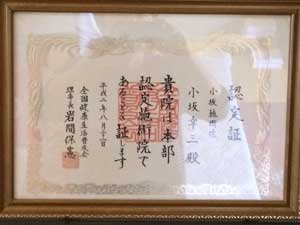 認定証
小坂施術院
小坂幸三殿
貴院は本部
認定施術院で
あることを証します
平成二年八月三十一日
全国健康生活普及会
理事長 岩間保憲